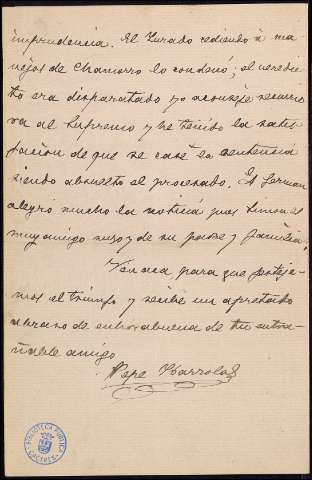 imprudencia. El Jurado cediendo á ma
nejos de Chamorro lo condenó; el veredic
to era disparatado yo aconsejé recurrie
ra al Supremo y he tenido la satis
facion de que se case la sentencia
siendo absuelto el procesado. A German
alegró mucho la noticia pues Simon es
muy amigo suyo y de su padre y familia.
Ven acá para que festeje-
mos el triunfo y recibe un apretado
abrazo de enhorabuena de tu entra-
ñable amigo
Pepe Ibarrola
BIBLIOTECA PUBLICA
CACERES